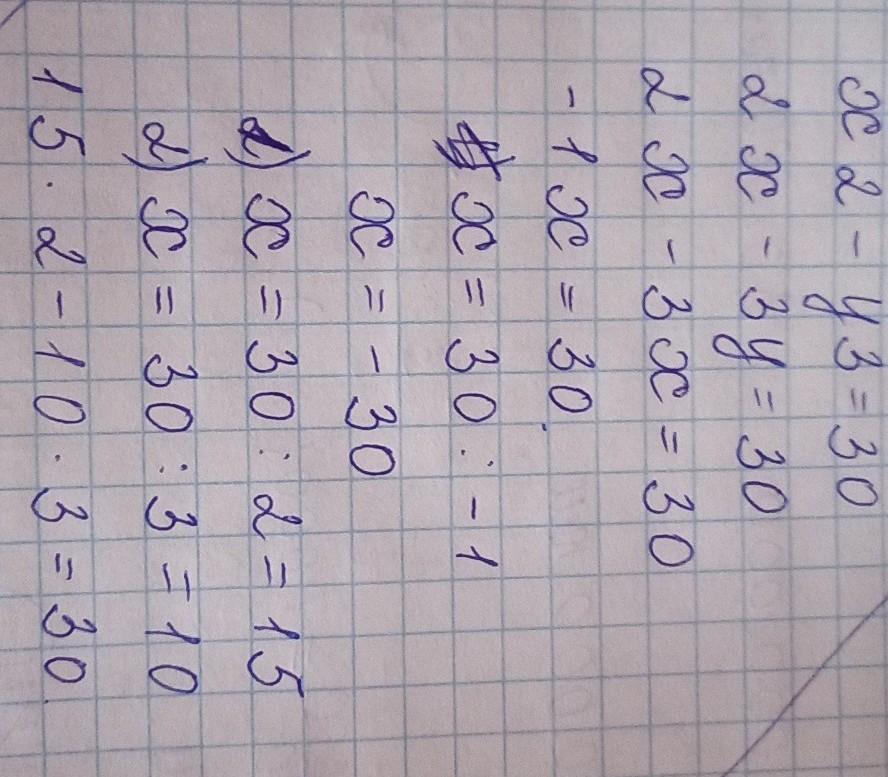 x2 - y3 = 30
2x - 3y = 30
2x - 3x = 30
-1x = 30.
x = 30 : -1
x = - 30
1) x = 30 : 2 = 15
2) x = 30 : 3 = 10
15 · 2 - 10 · 3 = 30